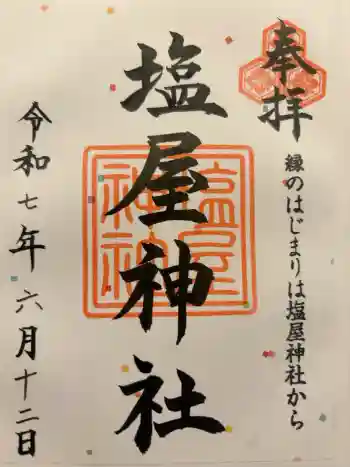 奉拝
縁のはじまりは塩屋神社から
塩屋神社
塩屋
神社
令和七年六月十二日